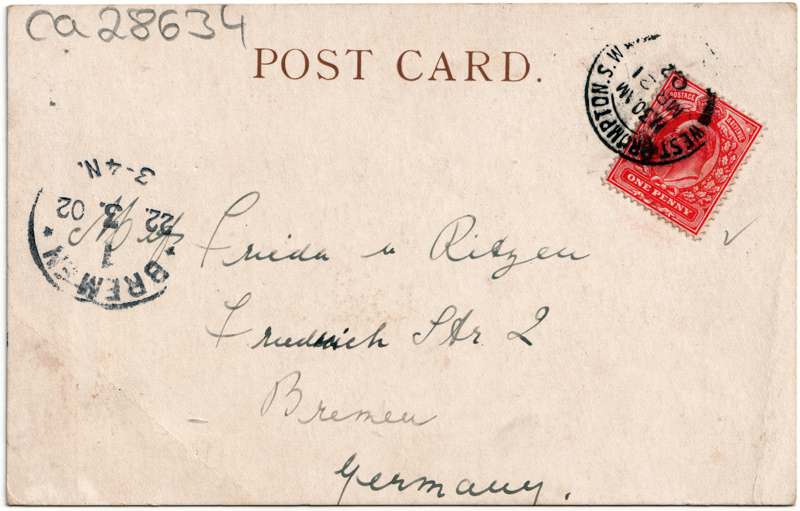 ca28634
POST CARD.
WEST BROMPTON. S.W
11.30 AM
MR 21
02
POSTAGE
ONE PENNY
BREMEN
1
22. 3. 02
3-4 N.
Frieda u Ritzen
Friedrich Str 2
Bremen
Germany.